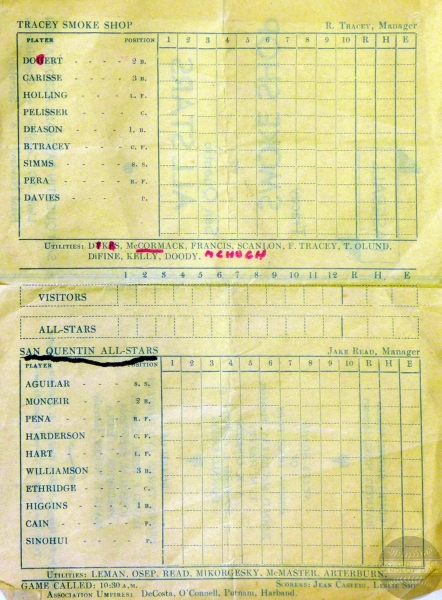 TRACEY SMOKE SHOP R. TRACEY, Manager
PLAYER POSITION 1 2 3 4 5 6 7 8 9 10 R H E
DOUERT - - - - 2 B.
CARISSE - - - - 3 B.
HOLLING - - - - L. F.
PELISSER - - - - C.
DEASON - - - - 1. B.
B. TRACEY - - - - C. F.
SIMMS - - - - S. S.
PERA - - - - R. F.
DAVIES - - - - P.
UTILITIES: McCORMACK, FRANCIS, SCANLON, F. TRACEY, T. OLUND.
DiFINE, KELLY, DOODY. MCHUGH
1 2 3 4 5 6 7 8 9 10 11 12 R H E
VISITORS
ALL-STARS
SAN QUENTIN ALL-STARS JAKE READ, Manager
PLAYER POSITION 1 2 3 4 5 6 7 8 9 10 R H E
AGUILAR - - - S. S.
MONCEIR - - - 2 B.
PENA - - - - R. F.
HARDERSON - - C. F.
HART - - - - L. F.
WILLIAMSON - - 3 B.
ETHRIDGE - - - C.
HIGGINS - - - 1 B.
CAIN - - - - P.
SINOHUI - - - P.
UTILITIES: LEMAN, OSEP, READ, MIKORGESKY, McMASTER, ARTERBURN.
GAME CALLED: 10:30 A.M. SCORERS: JEAN
ASSOCIATION UMPIRES: DeCosta, O'Connell, Putnam, Harband.